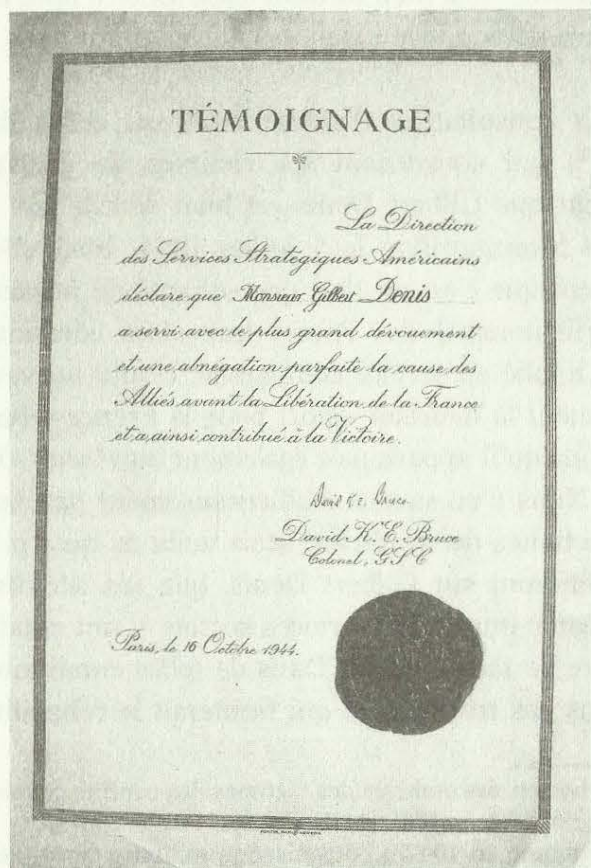 TÉMOIGNAGE
La Direction
des Services Stratégiques Américains
déclare que Monsieur Gilbert Denis
a servi avec le plus grand dévouement
et une abnégation parfaite la cause des
Alliés avant la Libération de la France
et a ainsi contribué à la Victoire.
David K. E. Bruce
David K. E. Bruce
Colonel, GSC
Paris, le 16 Octobre 1944.